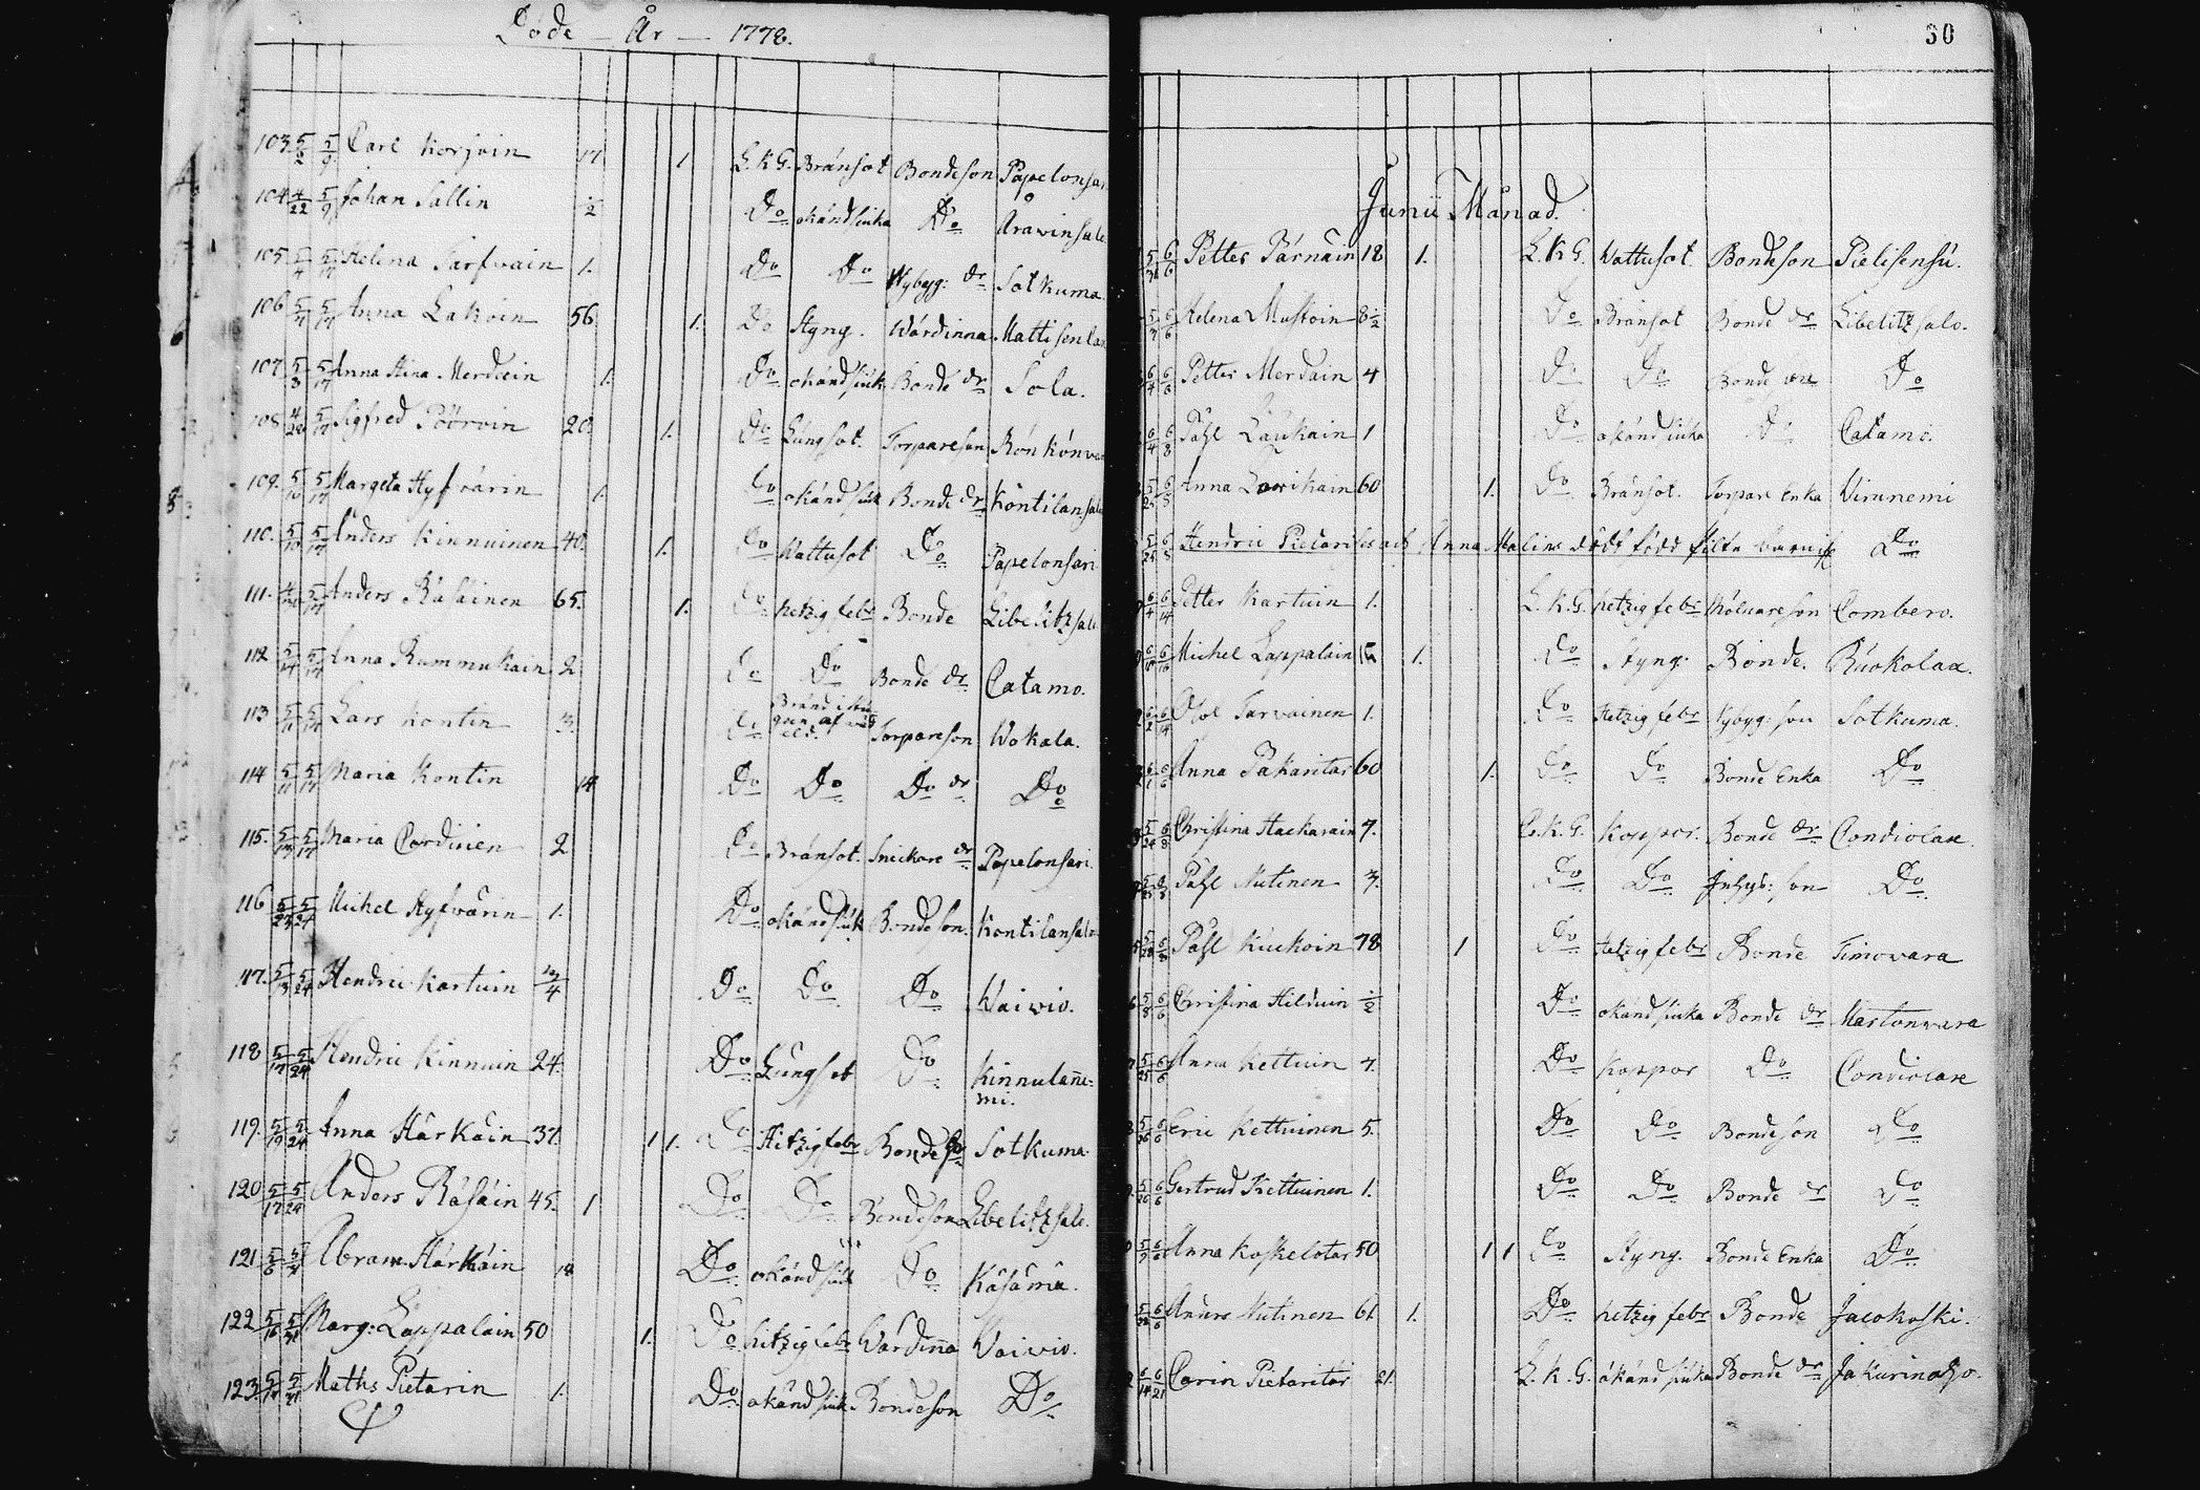 Döde – År – 1778.
103 5/2 5/9 Carl Korpin 17 1. L.K.G. Bränsot Bondeson Papelonsar
104 4/22 5/9 Johan Sallin 1/2 Do okänd siuka Do Arawinsalo
105 5/4 5/17 Helena Tarfvain 1. Do Do Nybyg: dr Sotkuma.
106 5/7 5/17 Anna Lakoin 56 1. Do Styng. Wärdinna Mattisenlax
107 5/3 5/17 Anna Stina Merdiein 1. Do okänd siuk Bonde dr Sola.
108 4/28 5/17 Sigfred Pöörvin 20. 1. Do Lungsot. Torpareson Rönkönva
109. 5/10 5/17 Margeta Hyfvärin 1. Do okänd siuk Bonde dr Kontilansalo
110. 5/10 5/17 Anders Kinnuinen 40. 1. Do Wattusot Do Papelonsari
111. 5/17 Anders Räsäinen 65. 1. Do hetzig febr Bonde Libelitzsalo
112 5/14 5/17 Anna Rummukain 2 Do Do Bonde dr Catamo.
113 5/11 5/17 Lars Kontin 3. Do Bränd i stugan af wåd eld. Torpareson Wokala.
114 5/11 5/17 Maria Kontin 14 Do Do Do dr Do
115. 5/13 5/17 Maria Cordinen 2 Do Bränsot. Snickare dr Papelonsari
116 5/23 5/24 Michel Hyfvärin 1. Do okänd siuk Bondeson. Kontilansalo
117. 5/13 5/24 Hendric Kartuin 3/4 Do Do Do Waivio.
118 5/17 5/24 Hendric Kinnuin 24. Do Lungsot Do Kinnulañe=
mi.
119. 5/19 5/24 Anna Härkäin 37. 1 1. Do Hitzig febr Bonde Sotkuma
120 5/17 5/24 Anders Räsäin 45. 1 Do Do Bondeson Libelitzsalo.
121 5/6 5/31 Abram Härkäin 18 Do okänd siuk Do Käsämä.
122 5/16 5/31 Marg: Lappalain 50 1. Do hitzig febr Wärdiña Waivio.
123. 5/31 Maths Pietarin 1. Do okänd siuk Bondeson Do
30
Junii Månad.
6/6 Petter Pärnäin 18 1. L.K.G. Wattusot Bondeson Pielisensu.
5/7 6/6 Helena Mustoin 8 1/2 Do Bränsot Bonde dr Libelitzsalo.
6/4 6/6 Petter Merdain 4 Do Do Bonde Do
6/4 6/8 Påhl Laukain 1 Do okänd siuka Do Catamo.
5/25 6/8 Anna Laurikain 60 1. Do Bränsot. Torpare Enka Virunemi
5/28 6/8 Hendric Pietarises och Anna Malins dödt född barn Do
6/4 6/14 Petter Kartuin 1. L.K.G. hetzig febr Combero.
6/10 6/16 Michel Lappalain 1. Do Styng. Bonde. Ruokolax.
6/2 6/14 Olof Tarvainen 1. Do Hetzig febr Nybyg: son Sotkuma.
6/1 6/6 Anna Pakaritar 60 1. Do Do Bonde Enka Do
5/24 6/8 Christina Hackarain 7. L.K.G. Koppor. Bonde dr Condiolax
5/25 6/8 Påhl Nutinen 3. Do Do Inhys: son Do
5/28 6/8 Påhl Kuckoin 78 1 Do Hetzig febr Bonde Timovara
5/8 6/6 Christina Hilduin 1/2 Do okänd siuka Bonde dr Mastonwara
5/25 6/6 Anna Kettuin 7. Do Koppor Do Condiolax
5/26 6/6 Eric Kettuinen 5. Do Do Bondeson Do
5/26 6/6 Gertrud Kettuinen 1. Do Do Bonde dr Do
5/9 6/6 Anna Koskelotar 50 1 1 Do Styng. Bonde Enka Do
5/28 6/6 Anders Nutinen 61 1. Do hetzig febr Bonde Jacokoski.
6/14 6/21 Carin Pietaritär 21. L.K.G. okänd siuka Bonde dr Jakurinahjo.